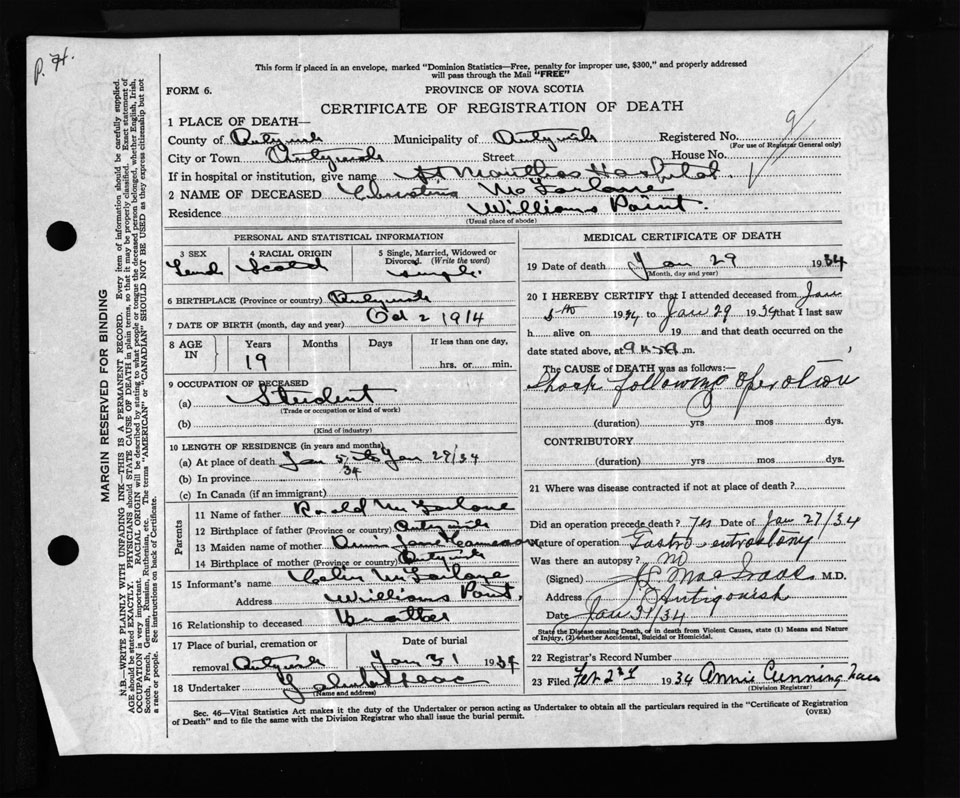 P. H.
This form if placed in an envelope, marked "Dominion Statistics—Free, penalty for improper use, $300," and properly addressed
will pass through the Mail "FREE"
FORM 6.
PROVINCE OF NOVA SCOTIA
CERTIFICATE OF REGISTRATION OF DEATH
9
1 PLACE OF DEATH—
County of Antigonish Municipality of Antigonish Registered No.
(For use of Registrar General only)
City or Town Antigonish Street House No.
If in hospital or institution, give name St Marthas Hospital
2 NAME OF DECEASED Christina McFarlane
Residence Williams Point.
(Usual place of abode)
PERSONAL AND STATISTICAL INFORMATION
3 SEX
4 RACIAL ORIGIN
Scotch
5 Single, Married, Widowed or
Divorced. (Write the word)
single.
6 BIRTHPLACE (Province or country) Antigonish
7 DATE OF BIRTH (month, day and year) Oct 2 1914
8 AGE
IN
Years
19
Months
Days
If less than one day,
hrs. or min.
9 OCCUPATION OF DECEASED
(a) Student
(Trade or occupation or kind of work)
(b)
(Kind of industry)
10 LENGTH OF RESIDENCE (in years and months)
(a) At place of death Jan 5/34 to Jan 29/34
(b) In province
(c) In Canada (if an immigrant)
Parents
11 Name of father Ronald McFarlane
12 Birthplace of father (Province or country) Antigonish
13 Maiden name of mother
14 Birthplace of mother (Province or country) Antigonish
15 Informant's name Colin McFarlane
Address Williams Point.
16 Relationship to deceased Brother
17 Place of burial, cremation or
removal Antigonish
Date of burial
Jan 31 1934
18 Undertaker
(Name and address)
MEDICAL CERTIFICATE OF DEATH
19 Date of death Jan 29 1934
(Month, day and year)
20 I HEREBY CERTIFY that I attended deceased from Jan
5th 1934 to Jan 29 1934 that I last saw
h alive on 19 and that death occurred on
the date stated above, at m.
The CAUSE OF DEATH was as follows:—
Shock following operation
(duration) yrs mos dys.
CONTRIBUTORY
(duration) yrs mos dys.
21 Where was disease contracted if not at place of death?
Did an operation precede death? Yes Date of Jan 27/34
Nature of operation Gastro entrostomy
Was there an autopsy? No
(Signed) MacIsaac M.D.
Address Antigonish
Date Jan 31/34
State the Disease causing Death, or in death from Violent Causes, state (1) Means and Nature
of Injury, (2) whether Accidental, Suicidal or Homicidal.
22 Registrar's Record Number
23 Filed Feb 2nd 1934 Annie Cunningham
(Division Registrar)
Sec. 46—Vital Statistics Act makes it the duty of the Undertaker or person acting as Undertaker to obtain all the particulars required in the "Certificate of Registration
of Death" and to file the same with the Division Registrar who shall issue the burial permit.
(OVER)
MARGIN RESERVED FOR BINDING
N.B.—WRITE PLAINLY WITH UNFADING INK—THIS IS A PERMANENT RECORD. Every item of information should be carefully supplied.
AGE should be stated EXACTLY. PHYSICIANS should STATE CAUSE OF DEATH in plain terms, so that it may be properly classified. Exact statement of
OCCUPATION is very important. RACIAL ORIGIN will be described by stating to what people or tongue the deceased person belonged, whether English, Irish,
Scotch, French, German, Russian, Ruthenian, etc. The terms "AMERICAN" or "CANADIAN" SHOULD NOT BE USED as they express citizenship but not
a race or people. See instructions on back of Certificate.